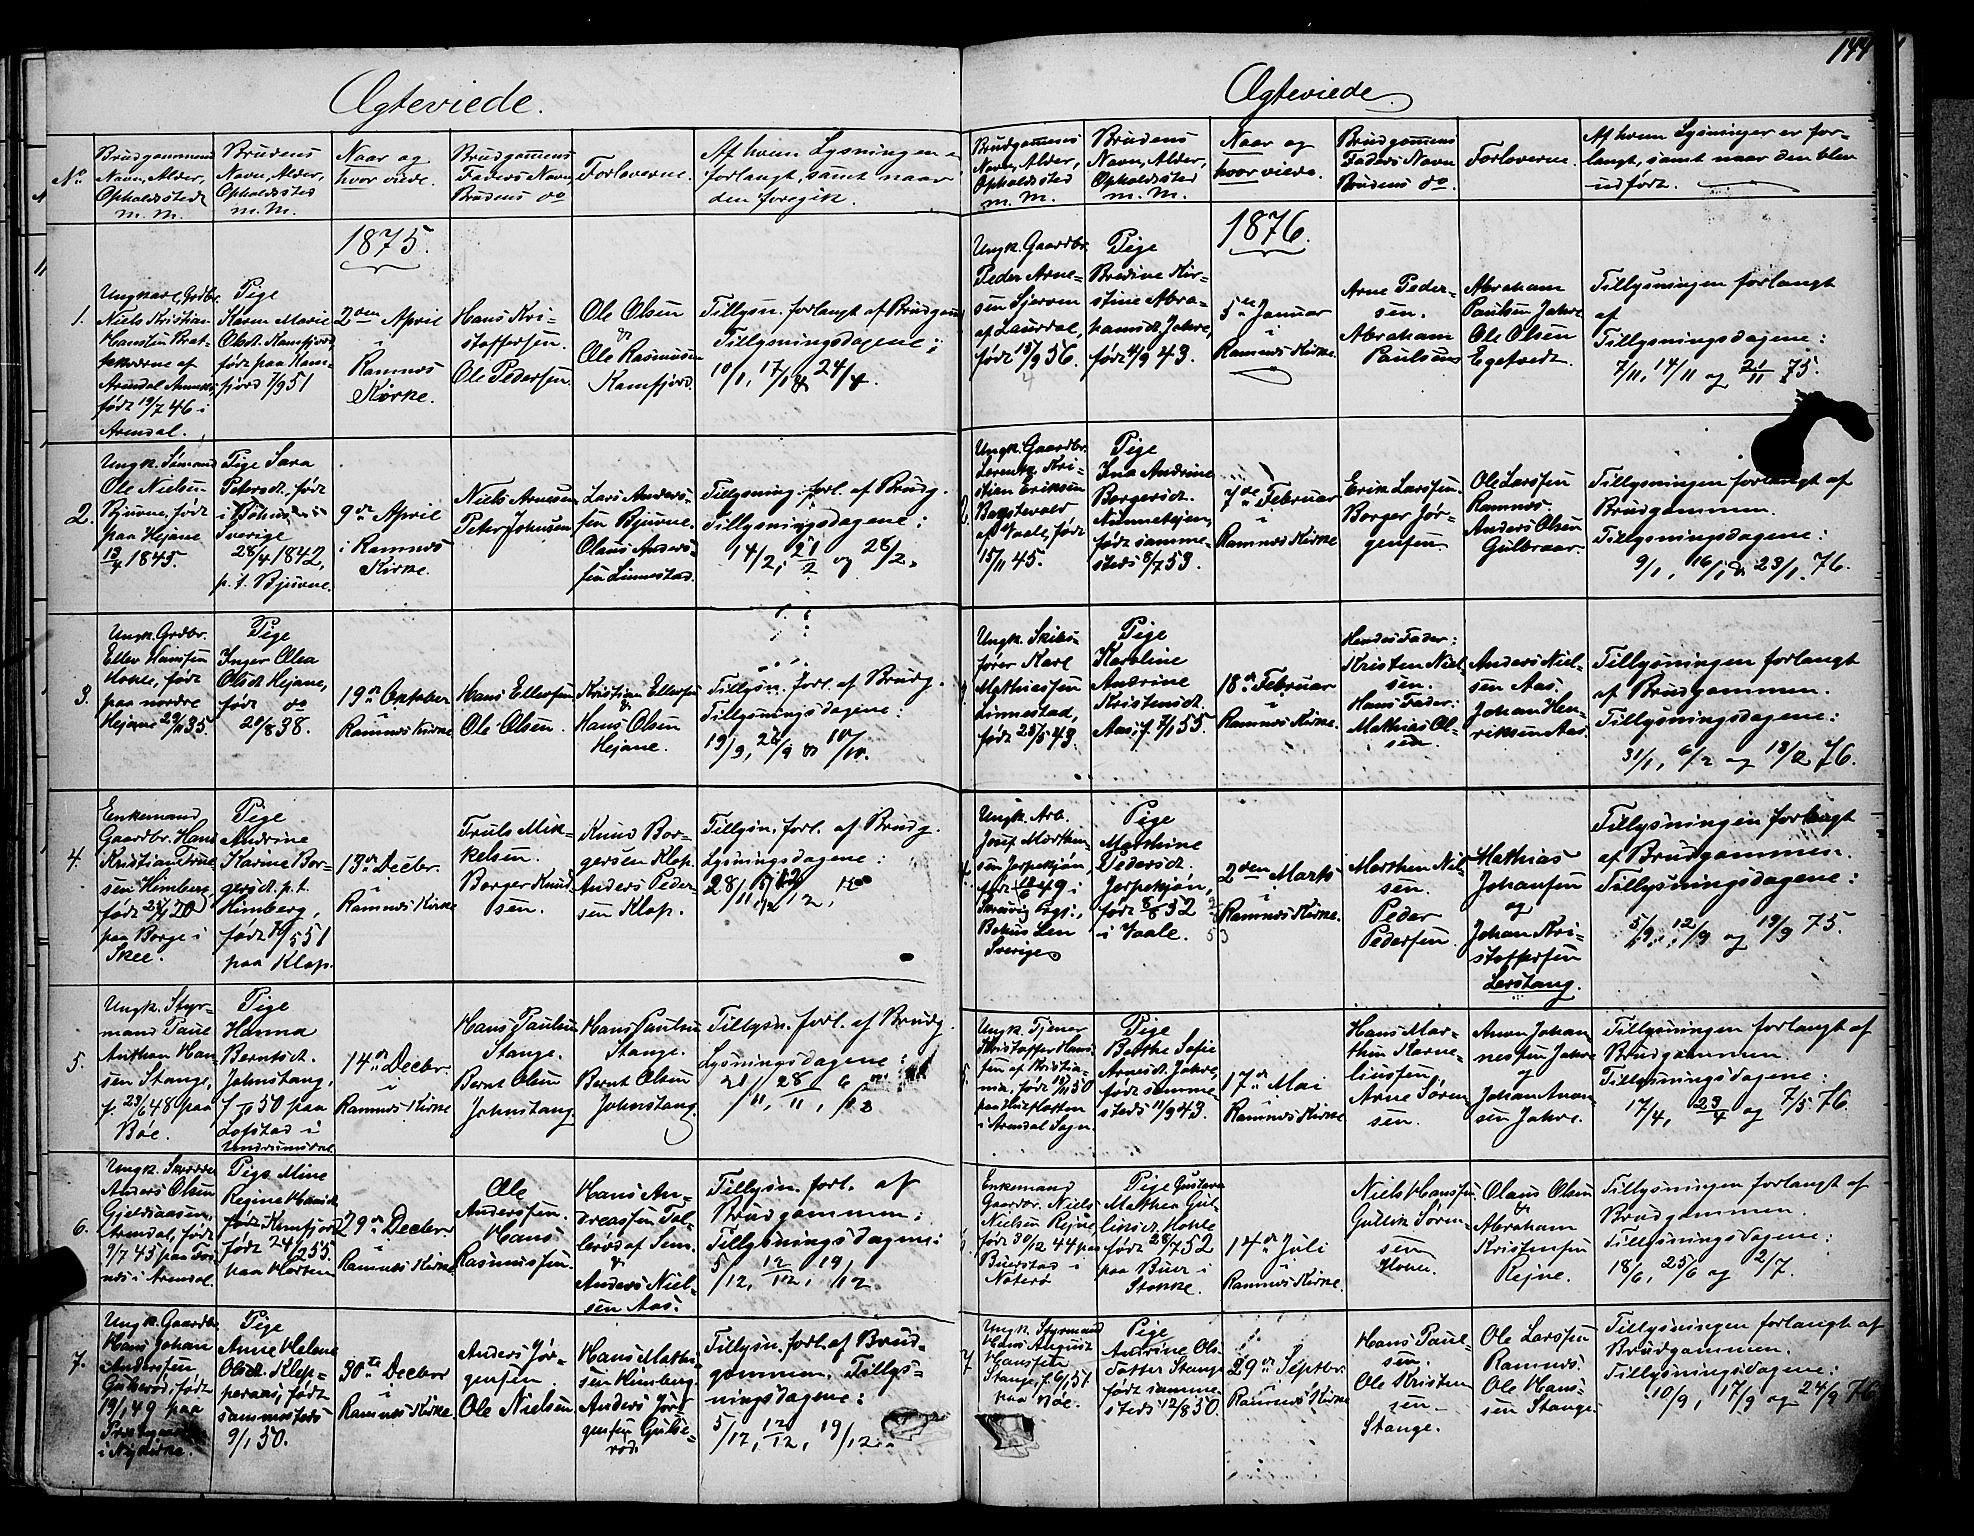 144
Ægteviede.
No
Brudgommens
Navn, Alder,
Opholdssted
m. M.
Brudens
Navn, Alder,
Opholdssted
m. M.
Naar og
hvor viede.
Brudgommens
Faders Navn
Brudens do
Forloverne.
Af hvem Lysningen er
forlangt, samt naar
den foregik.
1875.
1.
Ungkarl, Grdbr.
Niels Kristian
Hansen
af
Arendal
født 19/7 46 i
Arendal.
Pige
Karen Marie
Olsdt. Kamfjord
født paa Kam-
fjord 7/9 51
2den April
i
Ramnes
Kirke.
Hans Kri-
stoffersen.
Ole Pedersen.
Ole Olsen
&
Ole Rasmussen
Kamfjord.
Tillysn. forlangt af Brudgom
Tillysningsdagene:
10/1, 17/1 & 24/1.
2.
Ungk. Sømand
Ole Nielsen
Bjuerne, født
paa Hejane
13/4 1845.
Pige Sara
Petersdt. født
i
Sverige
28/4 1842,
p. t. Bjuerne.
9de April
i Ramnes
Kirke.
Niels Arnesen
Peter Johnsen
Lars Anders-
sen Bjuerne.
Olaus Anders-
sen Linnestad.
Tillysning. forl. af Brudg.
Tillysningsdagene:
14/2, 21/2 og 28/2.
3.
Ungk. Grdbr.
Ellev Hansen
Hotle, født
paa nordre
Hejane 35.
Pige
Inger Olea
Olsdt Hejane,
født do
20/8 38.
19de Oktober
i
Ramnes Kirke
Hans Ellefsen
Ole Olsen.
Kristian Ellefsen
&
Hans Olsen
Hejane.
Tillysn. forl. af Brudg.
Tillysningsdagene:
19/9, 26/9 & 10/10.
4.
Enkemand
Gaardbr. Hans
Kristian True
sen Himberg,
født 20
paa Borge i
Skee.
Pige
Andrine
Karine Bor-
gersdt. p.t.
Himberg,
født 51
paa Klop.
13de Decbr.
i
Ramnes Kirke
Truls Mik-
kelsen.
Borger Knud
sen.
Knud Bor-
gersen Klop.
Anders Peder
sen Klop.
Tillysn. forl. af Brudg.
Lysningsdagene:
28/11,
5.
Ungk. Styr-
mand Paul
Anthon Han
sen Stange,
f. 23/6 48 paa
Bøe.
Pige
Hanna
Berntsdt.
Johnstang,
50 paa
Lofstad i
Undrumsdal
14de Decbr.
i
Ramnes Kirke
Hans Paulsen
Stange.
Bernt Olsen
Johnstang
Hans Paulsen
Stange.
Bernt Olsen
Johnstang
Tillysn. forl. af Brudg.
Lysningsdagene:
21/11, 28/11,
6.
Ungk. Skrædder
Anders Olsen
Gjeldaasen,
Arendal, født
9/7 45 paa
i Arendal.
Pige Mine
Regine Hansdt.
født Kamfjord
født 24/2 55
paa Horten
29de Decbr.
i
Ramnes Kirke
Ole
Anderssen.
Hans
Rasmussen.
Hans An-
dreassen Fal-
lerød af Sem
&
Anders Niel-
sen Aas.
Tillysn. forl. af
Brudgommen:
Tillysningsdagene:
5/12, 12/12, 19/12.
7.
Ungk. Gaardbr.
Hans Johan
Anderssen
Gulserød, født
19/1 49 paa
i Nykirke.
Pige
Anne Helene
Olsdt. Klop-
peraas, født
sammesteds
9/1 50.
30te Decbr
i
Ramnes Kirke.
Anders Jør-
gensen.
Ole Nielsen
Hans Mathi-
sen Himberg.
Anders Jør-
gensen Gulse-
rød.
Tillysn. forl. af Brud-
gommen. Tillys-
ningsdagene:
5/12, 12/12, 19/12.
Ægteviede.
Brudgommens
Navn, Alder,
Opholdssted
m. M.
Brudens
Navn, Alder,
Opholdssted
m. M.
Naar og
hvor viede.
Brudgommens
Faders Navn
Brudens do
Forloverne.
Af hvem Lysninger er for-
langt, samt naar den blev
udført.
1876.
Ungk. Gaardbr.
Peder Arne-
sen Gjerven
af Laurdal,
født 15/9 56.
Pige
Bredine Kir-
stine Abra-
hamsdt. Jahre,
født 4/9 43.
5te Januar
i
Ramnes Kirke.
Arne Peder-
sen.
Abraham
Paulsen
Abraham
Paulsen Jahre
Ole Olsen
Egetvedt.
Tillysningen forlangt
af
Tillysningsdagene:
7/11, 14/11 og 21/11 75.
2.
Ungk. Gaardbr.
Lorentz Kri-
stian Eriksen
Bogstevold
af Vaale, født
15/11 45.
Pige
Ina Andrine
Borgersdt.
født samme-
steds 8/7 53.
7de Februar
i
Ramnes Kirke
Erik Larssen.
Borger Jør-
gensen.
Ole Larssen
Ramnes.
Anders Olsen
Gulbraar.
Tillysningen forlangt af
Brudgommen.
Tillysningsdagene:
9/1, 16/1 & 23/1. 76.
Ungk. Skibs-
fører Karl
Mathiassen
Linnestad,
født 28/5 43.
Pige
Karoline
Andrine
Kristensdt.
Aas, f. 7/1 55.
18de Februar
i
Ramnes Kirke.
Hendes Fader:
Kristen Niel-
sen.
Hans Fader:
Mathias Ol-
sen.
Anders Niel-
sen Aas.
Johan Hen-
riksen Aas.
Tillysningen forlangt
af Brudgommen.
Tillysningsdagene:
31/1, 6/2 og 13/2 76.
4.
Ungk. Arb.
Josef Morthen-
sen Jerpekjøn,
født 49 i
Bohus Len
Sverige
Pige
Mathine
Pedersdt.
Jerpekjøn,
født 8/8 52
i Vaale.
53
2den Marts
i
Ramnes Kirke.
Morthen Niel-
sen.
Peder
Pedersen.
Mathias
Johansen
og
Johan Kri-
stoffersen
Lerstang.
Tillysningen forlangt
af Brudgommen.
Tillysningsdagene:
5/9, 12/9 og 19/9 75.
Ungk. Tjener
Kristoffer Hans
sen af Kristia-
nia, født 50
i Arendal Sogn.
Pige
Berthe Sofie
Arnesdt. Jahre,
født samme
steds 11/9 43.
17de Mai
i
Ramnes Kirke.
Hans Mar-
thin Korne-
liussen.
Arne Søren
sen.
Anon Johan-
nessen Jahre
og
Johan Anon-
sen Jahre.
Tillysningen forlangt af
Brudgommen.
Tillysningsdagene:
17/4, 23/4 og 7/5. 76.
Enkemand
Gaardbr. Niels
Nielsen Rejne,
født 30/12 44 paa
Buerstad i
Nøterø
Pige Gustava
Mathea Gul-
liksdt. Hotle
født 28/7 52
paa Buer i
Stokke.
14de Juli
i
Ramnes Kirke.
Niels Hanssen
Gullik Søren-
sen
Hotle.
Olaus Olsen
&
Abraham
Kristensen
Rejne.
Tillysningen forlangt af
Brudgommen.
Tillysningsdagene:
18/6, 25/6 og 2/7.
7
Ungk. Styrmand
Hans August
Hanssen
Stange, f. 6/1 51
paa Bøe.
Pige
Andrine Ols-
datter Stange
født samme
steds 12/8 50.
29de Septbr.
i
Ramnes Kirke
Hans Paul-
sen.
Ole Kristen
sen
Stange.
Ole Larssen
Ramnes.
Ole Hans-
sen Stange.
Tillysningen forlangt af
Brudgommen.
Tillysningsdagene:
10/9, 17/9 og 24/9 76.